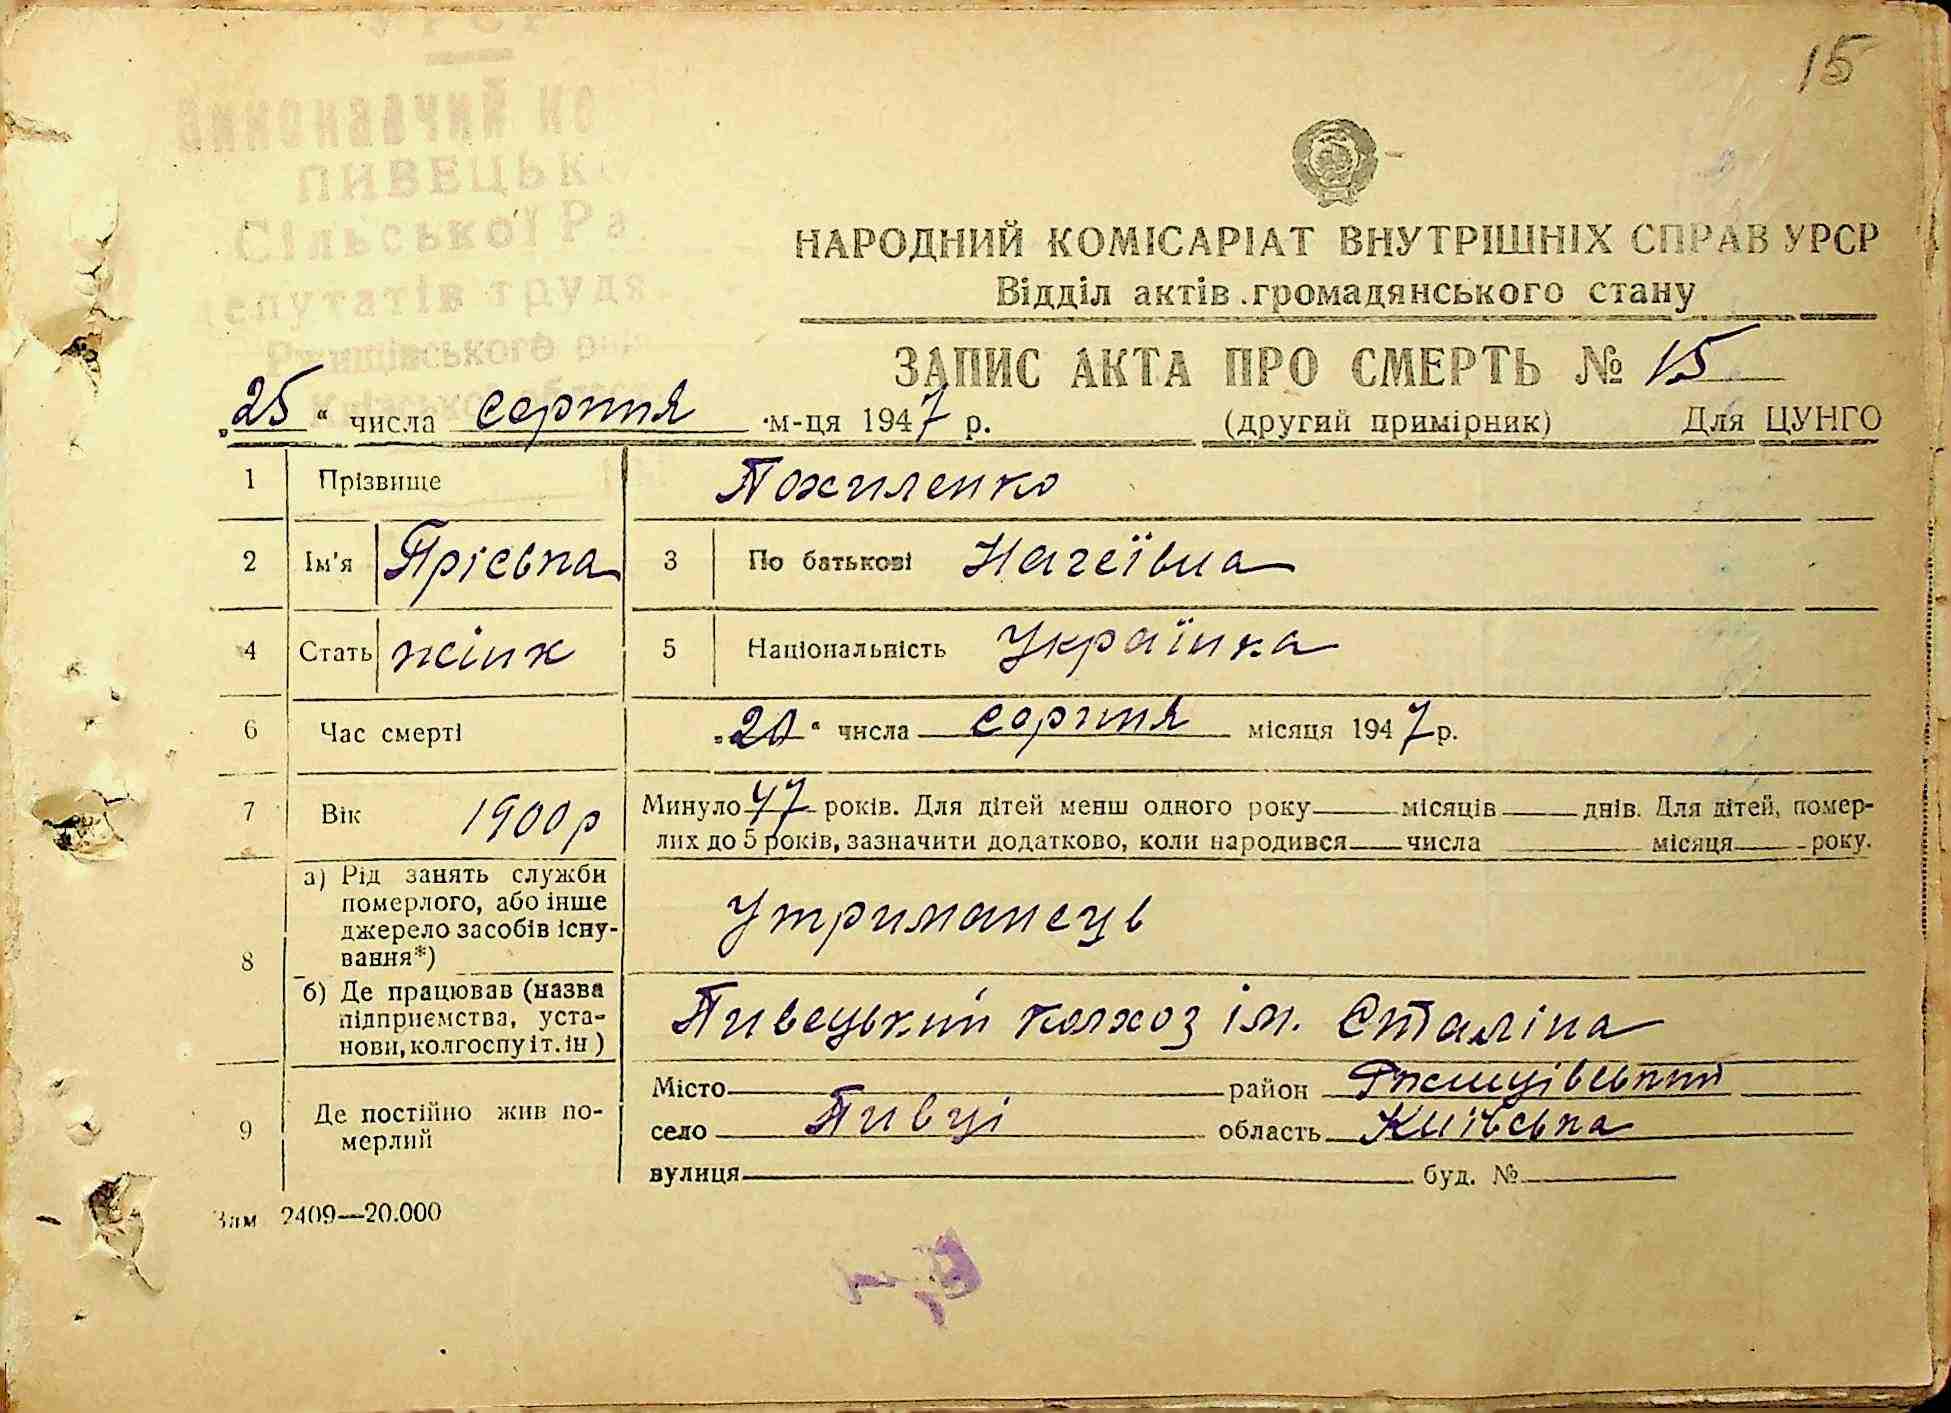 15
УРСР
Виконавчий ко
ПИВЕЦЬК
Сільської Ра
епутатів трудя
Ржищівського рай
НАРОДНИЙ КОМІСАРІАТ ВНУТРІШНІХ СПРАВ УРСР
Відділ актів громадянського стану
ЗАПИС АКТА ПРО СМЕРТЬ № 15
„25“ числа серпня м-ця 1947 р. (другий примірник) Для ЦУНГО
1 Прізвище Похиленко
2 Ім'я Прісьпа 3 По батькові
4 Стать жінк 5 Національність Українка
6 Час смерті „20“ числа серпня місяця 1947 р.
7 Вік 1900 р Минуло 47 років. Для дітей менш одного року місяців днів. Для дітей, помер-
лих до 5 років, зазначити додатково, коли народився числа місяця року.
8 а) Рід занять служби
померлого, або інше
джерело засобів існу-
вання*)
Утриманець
б) Де працював (назва
підприємства, уста-
нови, колгоспу і т. ін)
Пивецький колхоз ім. Сталіна
9 Де постійно жив по-
мерлий
Місто район Ржищівський
село Півці область Київська
вулиця буд. №
Зам 2409—20.000